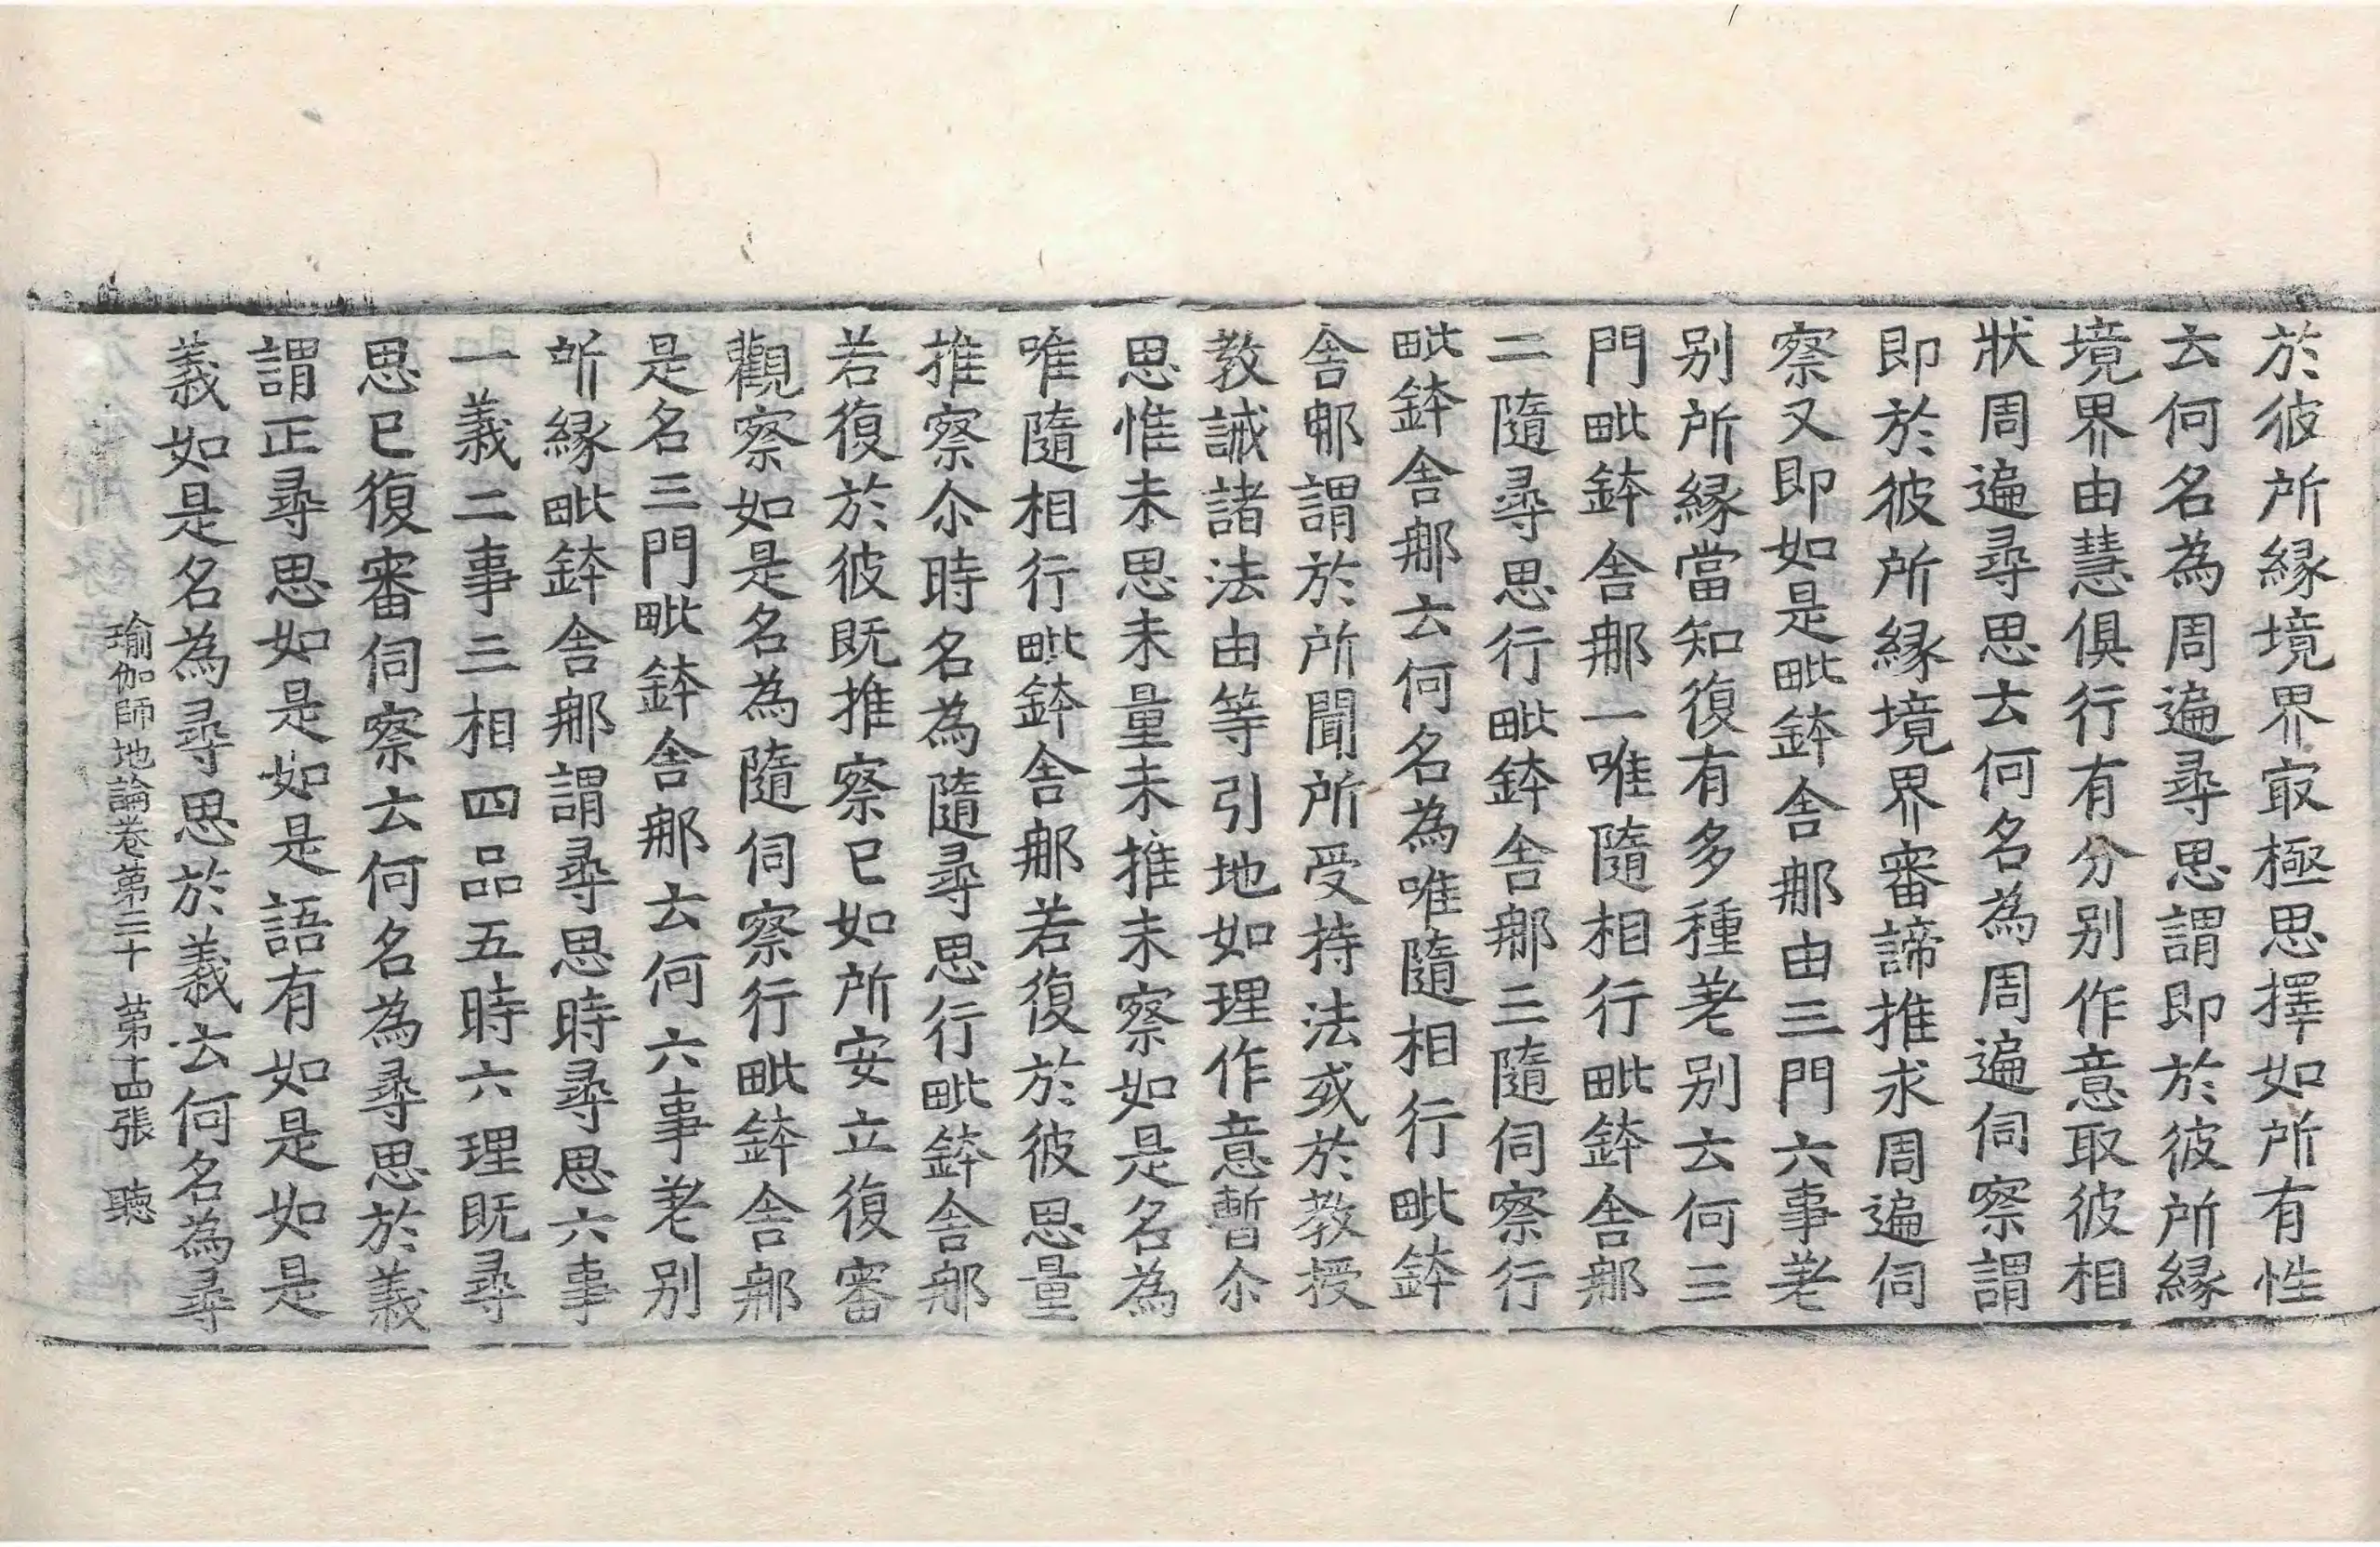 於彼所縁境界㝡極思擇如所有性
云何名為周遍尋思謂即於彼所縁
境界由慧俱行有分别作意取彼相
狀周遍尋思云何名為周遍伺察謂
即於彼所縁境界審諦推求周遍伺
察又即如是毗鉢舍那由三門六事差
别所縁當知復有多種差别云何三
門毗鉢舍那一唯隨相行毗鉢舍那
二隨尋思行毗鉢舍那三隨伺察行
毗鉢舍那云何名為唯隨相行毗鉢
舍那謂於所聞所受持法或於教授
教誡諸法由等引地如理作意暫尒
思惟未思未量未推未察如是名為
唯隨相行毗鉢舍那若復於彼思量
推察尒時名為隨尋思行毗鉢舍那
若復於彼既推察已如所安立復審
觀察如是名為隨伺察行毗鉢舍那
是名三門毗鉢舍那云何六事差别
所縁毗鉢舍那謂尋思時尋思六事
一義二事三相四品五時六理既尋
思已復審伺察云何名為尋思於義
謂正尋思如是如是語有如是如是
義如是名為尋思於義云何名為尋
瑜伽師地論卷第三十 第十四張 聴